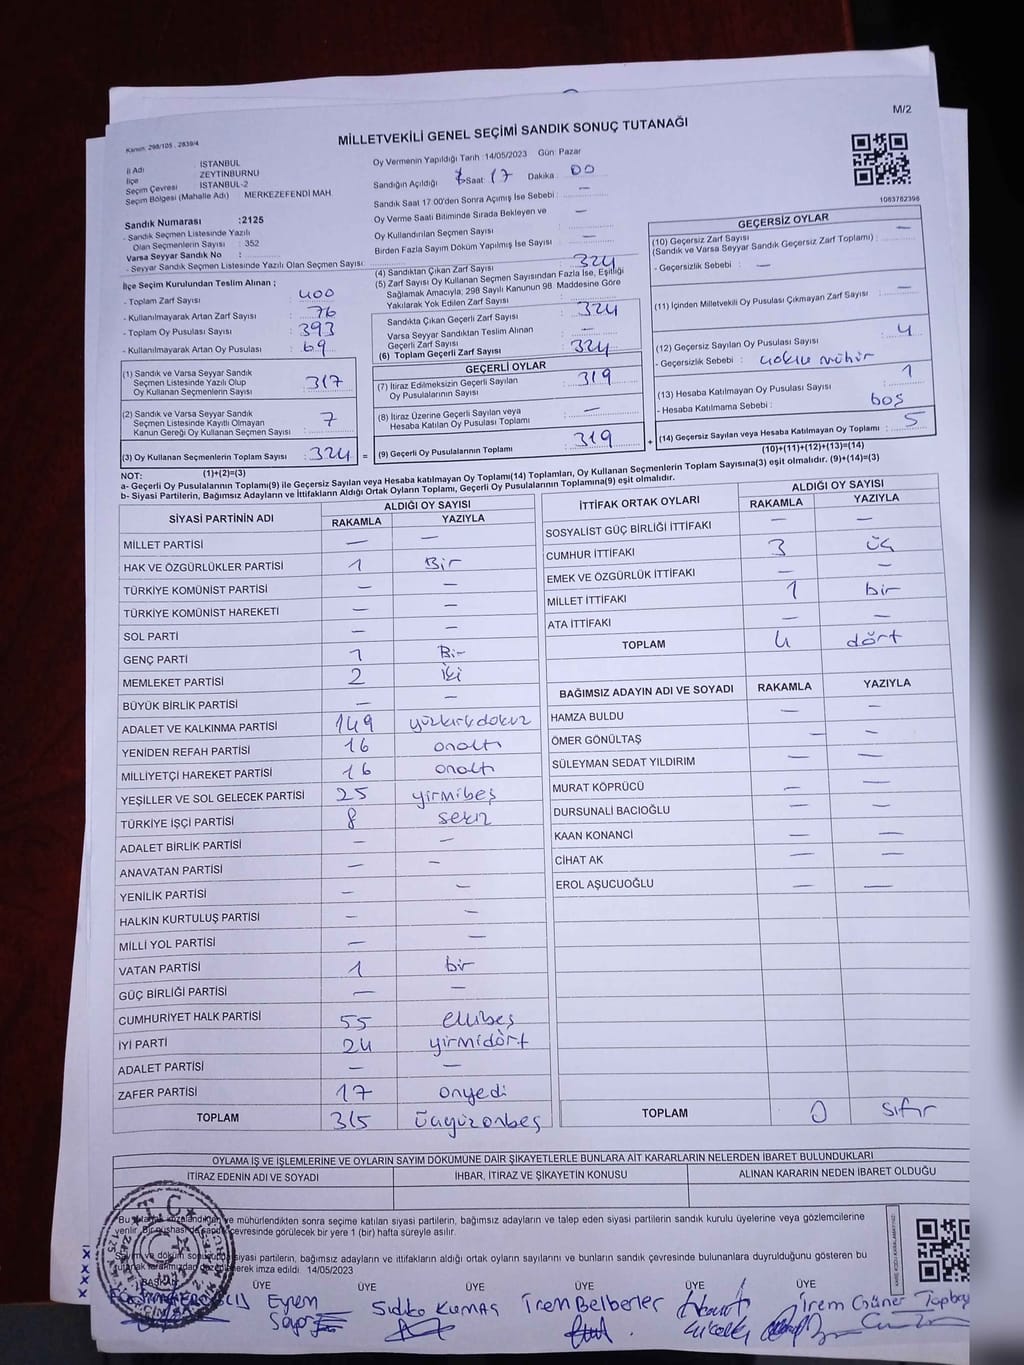 M/2
MİLLETVEKİLİ GENEL SEÇİMİ SANDIK SONUÇ TUTANAĞI
Kanun: 298/105 , 2839/4
İl Adı İSTANBUL
İlçe ZEYTİNBURNU
Seçim Çevresi İSTANBUL-2
Seçim Bölgesi (Mahalle Adı) MERKEZEFENDİ MAH.
Sandık Numarası :2125
- Sandık Seçmen Listesinde Yazılı
Olan Seçmenlerin Sayısı : 352
Varsa Seyyar Sandık No :
- Seyyar Sandık Seçmen Listesinde Yazılı Olan Seçmen Sayısı:
İlçe Seçim Kurulundan Teslim Alınan ;
- Toplam Zarf Sayısı : 400
- Kullanılmayarak Artan Zarf Sayısı : 76
- Toplam Oy Pusulası Sayısı : 393
- Kullanılmayarak Artan Oy Pusulası : 69
(1) Sandık ve Varsa Seyyar Sandık
Seçmen Listesinde Yazılı Olup
Oy Kullanan Seçmenlerin Sayısı : 317
(2) Sandık ve Varsa Seyyar Sandık
Seçmen Listesinde Kayıtlı Olmayan
Kanun Gereği Oy Kullanan Seçmen Sayısı : 7
(3) Oy Kullanan Seçmenlerin Toplam Sayısı : 324 =
(1)+(2)=(3)
Oy Vermenin Yapıldığı Tarih :14/05/2023 Gün: Pazar
Sandığın Açıldığı Saat: 17 Dakika: 00
Sandık Saat 17.00'den Sonra Açımış İse Sebebi : —
Oy Verme Saati Bitiminde Sırada Bekleyen ve
Oy Kullandırılan Seçmen Sayısı : —
Birden Fazla Sayım Döküm Yapılmış İse Sayısı : —
(4) Sandıktan Çıkan Zarf Sayısı : 324
(5) Zarf Sayısı Oy Kullanan Seçmen Sayısından Fazla İse, Eşitliği
Sağlamak Amacıyla, 298 Sayılı Kanunun 98. Maddesine Göre
Yakılarak Yok Edilen Zarf Sayısı : —
Sandıkta Çıkan Geçerli Zarf Sayısı : 324
Varsa Seyyar Sandıktan Teslim Alınan
Geçerli Zarf Sayısı : —
(6) Toplam Geçerli Zarf Sayısı : 324
GEÇERLİ OYLAR
(7) İtiraz Edilmeksizin Geçerli Sayılan
Oy Pusulalarının Sayısı : 319
(8) İtiraz Üzerine Geçerli Sayılan veya
Hesaba Katılan Oy Pusulası Toplamı : —
(9) Geçerli Oy Pusulalarının Toplamı : 319 +
1083782398
GEÇERSİZ OYLAR
(10) Geçersiz Zarf Sayısı
(Sandık ve Varsa Seyyar Sandık Geçersiz Zarf Toplamı) : —
- Geçersizlik Sebebi : —
(11) İçinden Milletvekili Oy Pusulası Çıkmayan Zarf Sayısı : —
(12) Geçersiz Sayılan Oy Pusulası Sayısı : 4
- Geçersizlik Sebebi : çoklu mühür
(13) Hesaba Katılmayan Oy Pusulası Sayısı : 1
- Hesaba Katılmama Sebebi : boş
(14) Geçersiz Sayılan veya Hesaba Katılmayan Oy Toplamı : 5
(10)+(11)+(12)+(13)=(14)
NOT:
a- Geçerli Oy Pusulalarının Toplamı(9) ile Geçersiz Sayılan veya Hesaba katılmayan Oy Toplamı(14) Toplamları, Oy Kullanan Seçmenlerin Toplam Sayısına(3) eşit olmalıdır. (9)+(14)=(3)
b- Siyasi Partilerin, Bağımsız Adayların ve İttifakların Aldığı Ortak Oyların Toplamı, Geçerli Oy Pusulalarının Toplamına(9) eşit olmalıdır.
SİYASİ PARTİNİN ADI ALDIĞI OY SAYISI
RAKAMLA YAZIYLA
MİLLET PARTİSİ — —
HAK VE ÖZGÜRLÜKLER PARTİSİ 1 Bir
TÜRKİYE KOMÜNİST PARTİSİ — —
TÜRKİYE KOMÜNİST HAREKETİ — —
SOL PARTİ — —
GENÇ PARTİ 1 Bir
MEMLEKET PARTİSİ 2 İki
BÜYÜK BİRLİK PARTİSİ — —
ADALET VE KALKINMA PARTİSİ 149 yüzkırkdokuz
YENİDEN REFAH PARTİSİ 16 onaltı
MİLLİYETÇİ HAREKET PARTİSİ 16 onaltı
YEŞİLLER VE SOL GELECEK PARTİSİ 25 yirmibeş
TÜRKİYE İŞÇİ PARTİSİ 8 sekiz
ADALET BİRLİK PARTİSİ — —
ANAVATAN PARTİSİ — —
YENİLİK PARTİSİ — —
HALKIN KURTULUŞ PARTİSİ — —
MİLLİ YOL PARTİSİ — —
VATAN PARTİSİ 1 bir
GÜÇ BİRLİĞİ PARTİSİ — —
CUMHURİYET HALK PARTİSİ 55 ellibeş
İYİ PARTİ 24 yirmidört
ADALET PARTİSİ — —
ZAFER PARTİSİ 17 onyedi
TOPLAM 315 üçyüzonbeş
İTTİFAK ORTAK OYLARI ALDIĞI OY SAYISI
RAKAMLA YAZIYLA
SOSYALİST GÜÇ BİRLİĞİ İTTİFAKI — —
CUMHUR İTTİFAKI 3 üç
EMEK VE ÖZGÜRLÜK İTTİFAKI — —
MİLLET İTTİFAKI 1 bir
ATA İTTİFAKI — —
TOPLAM 4 dört
BAĞIMSIZ ADAYIN ADI VE SOYADI RAKAMLA YAZIYLA
HAMZA BULDU — —
ÖMER GÖNÜLTAŞ — —
SÜLEYMAN SEDAT YILDIRIM — —
MURAT KÖPRÜCÜ — —
DURSUNALİ BACIOĞLU — —
KAAN KONANCİ — —
CİHAT AK — —
EROL AŞUCUOĞLU — —
TOPLAM 0 sıfır
OYLAMA İŞ VE İŞLEMLERİNE VE OYLARIN SAYIM DÖKÜMÜNE DAİR ŞİKAYETLERLE BUNLARA AİT KARARLARIN NELERDEN İBARET BULUNDUKLARI
İTİRAZ EDENİN ADI VE SOYADI İHBAR, İTİRAZ VE ŞİKAYETİN KONUSU ALINAN KARARIN NEDEN İBARET OLDUĞU
T.C.
Bu tutanak imzalandıktan ve mühürlendikten sonra seçime katılan siyasi partilerin, bağımsız adayların ve talep eden siyasi partilerin sandık kurulu üyelerine veya gözlemcilerine
verilir. Bir nüshası da sandık çevresinde görülecek bir yere 1 (bir) hafta süreyle asılır.
siyasi partilerin, bağımsız adayların ve ittifakların aldığı ortak oyların sayılarını ve bunların sandık çevresinde bulunanlara duyrulduğunu gösteren bu
imza edildi. 14/05/2023
BAŞKAN ÜYE ÜYE ÜYE ÜYE ÜYE
Eyşem Sıdko Kumaş İrem Belberler İrem Güner Topbaş